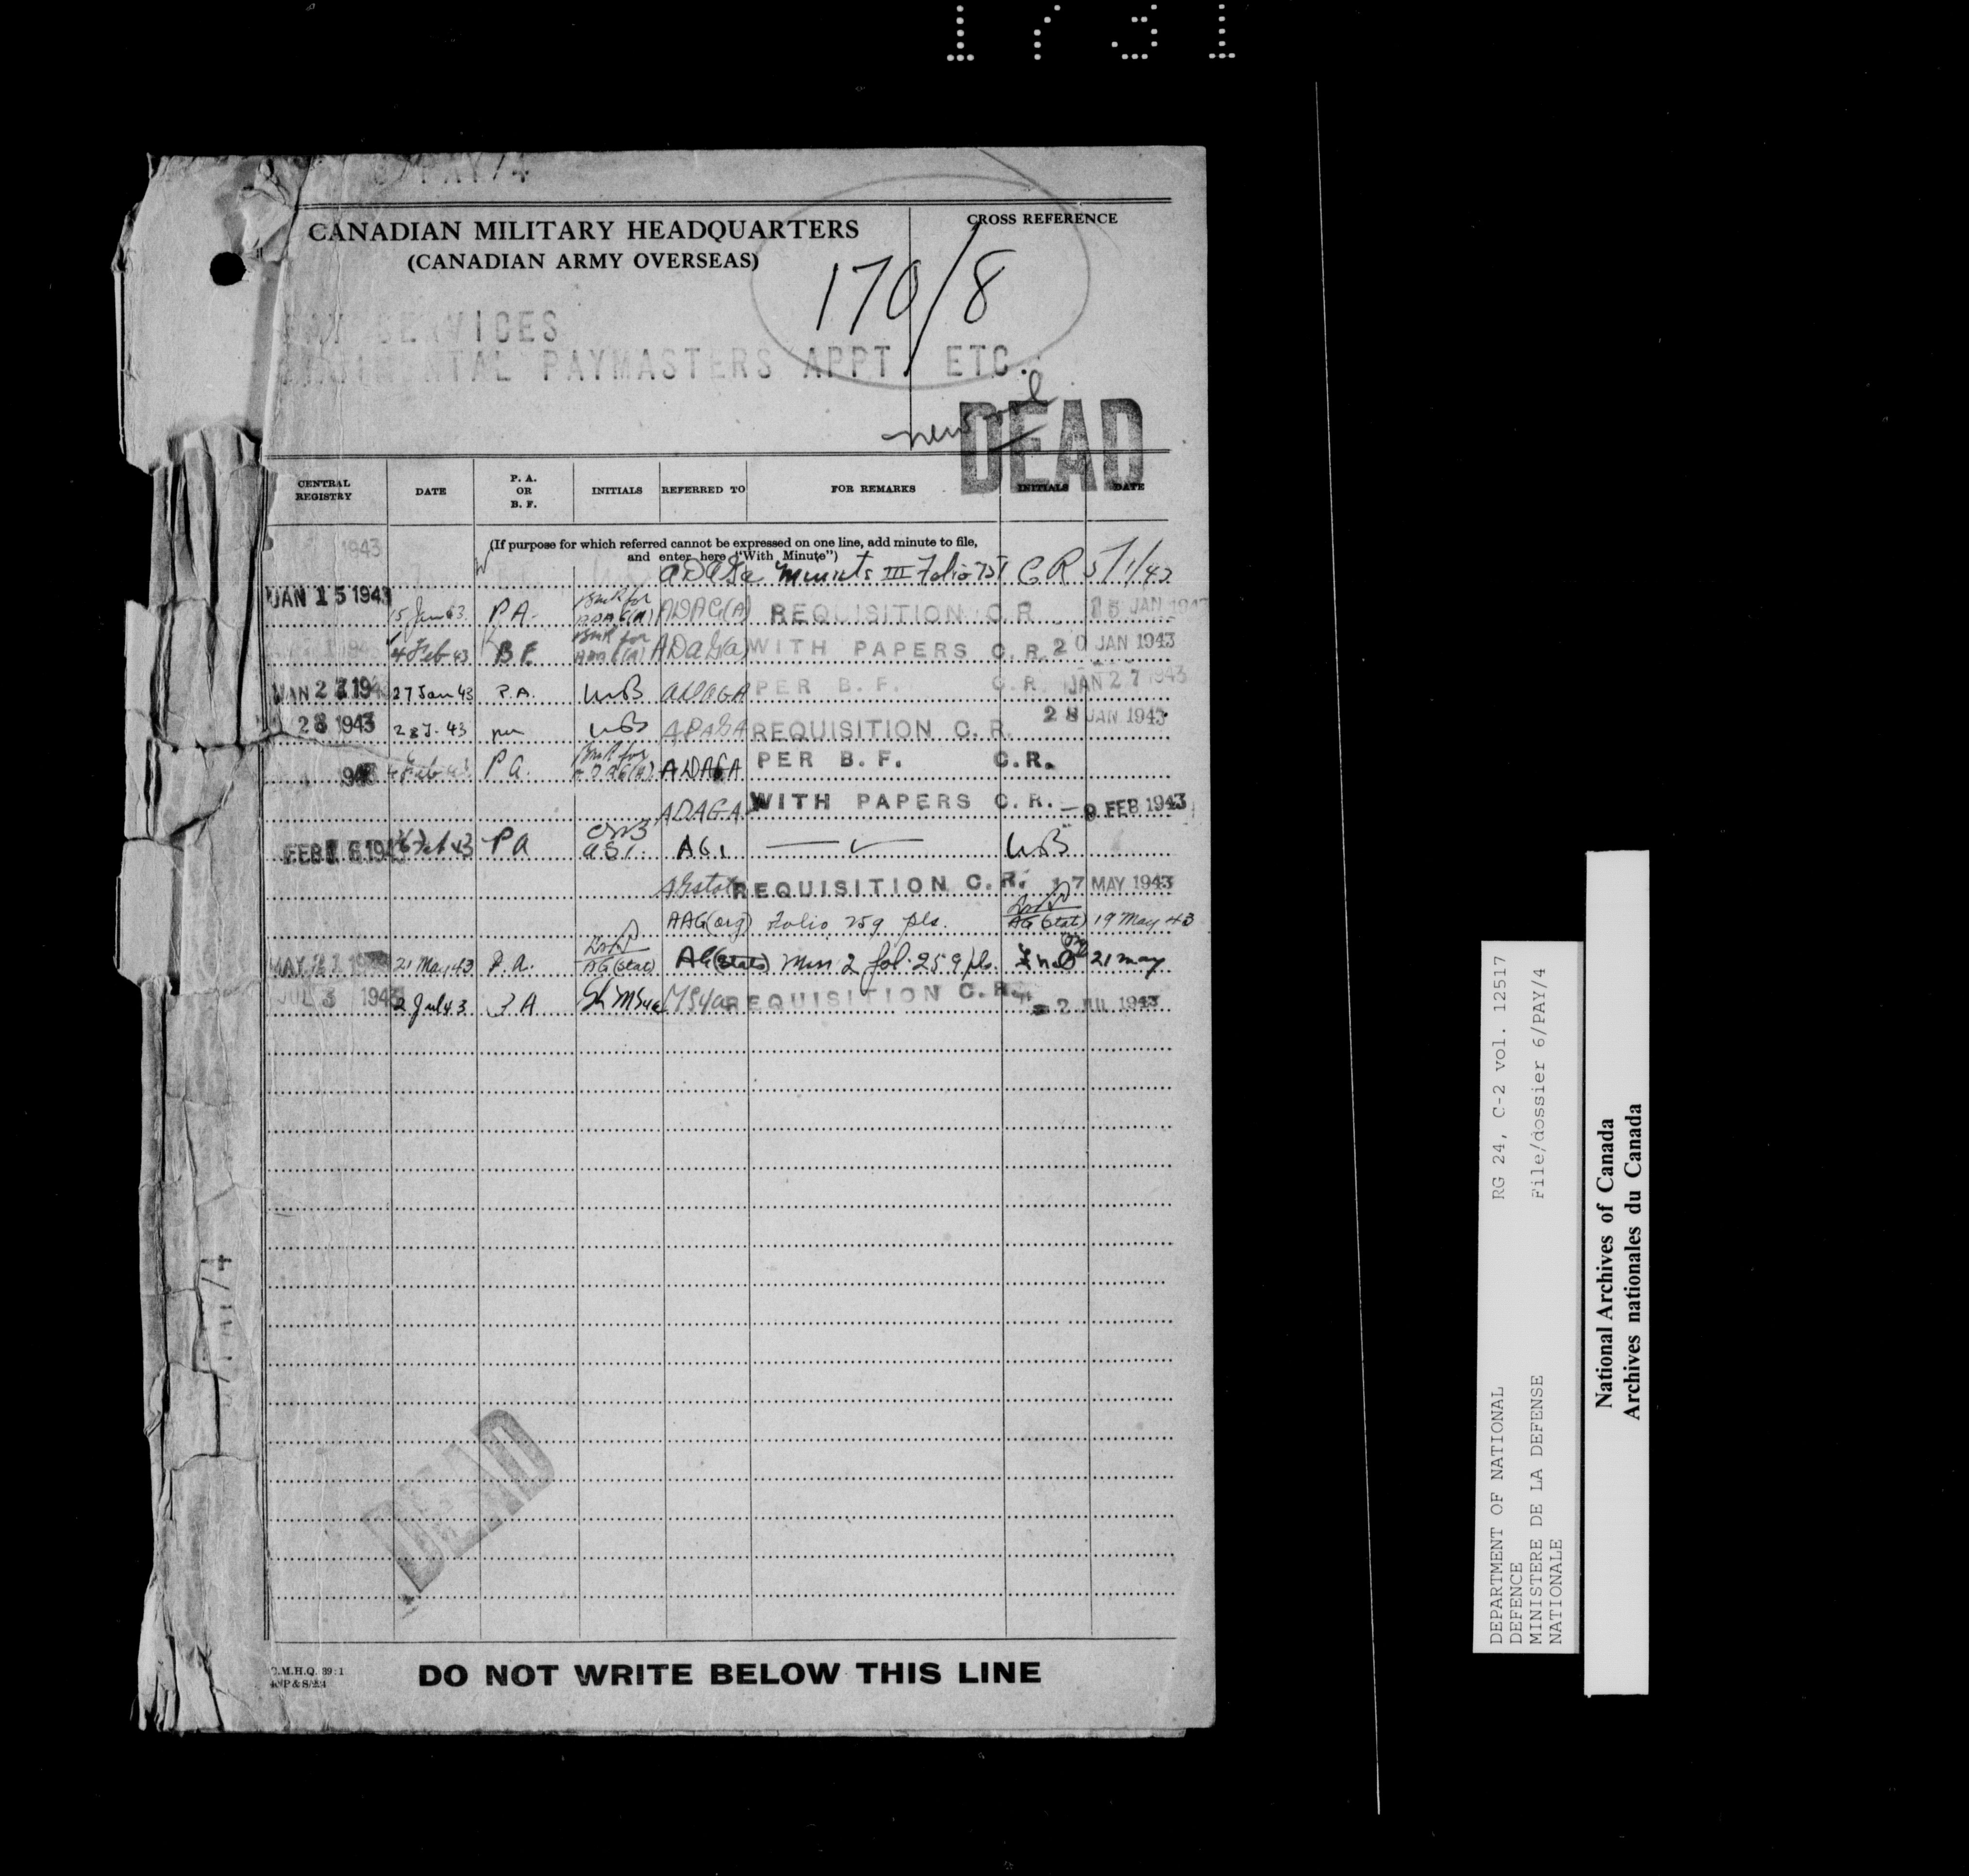 1731
6/PAY/4
CANADIAN MILITARY HEADQUARTERS
(CANADIAN ARMY OVERSEAS)
CROSS REFERENCE
170/8
PAY SERVICES
REGIMENTAL PAYMASTERS APPT. ETC.
new vol
DEAD
CENTRAL REGISTRY DATE P. A. OR B. F. INITIALS REFERRED TO FOR REMARKS INITIALS DATE
(If purpose for which referred cannot be expressed on one line, add minute to file,
and enter here "With Minute")
1943 III Folio CR 5/1/43
JAN 15 1943 15 Jan 43 P.A. ADAG(A) REQUISITION C.R. 15 JAN 1943
4 Feb 43 B.F. ADAG(a) WITH PAPERS C.R. 20 JAN 1943
JAN 27 1943 27 Jan 43 P.A. WB ADAGA PER B.F. C.R. JAN 27 1943
28 1943 28 J. 43 WB ADAGA REQUISITION C.R. 28 JAN 1943
4 Feb 43 P.A. ADAGA PER B.F. C.R.
ADAGA WITH PAPERS C.R. -9 FEB 1943
FEB 16 1943 16 Feb 43 PA AG1 WB
REQUISITION C.R. 17 MAY 1943
AAG(org) Folio 259 pls. AG(Stat) 19 May 43
MAY 21 1943 21 May 43 P.A. AG(Stat) AG(Stats) Min 2 fol. 259 pls. 21 May
JUL 3 1943 2 Jul 43 PA MS4a REQUISITION C.R. 2 JUL 1943
6/PAY/4
DEAD
C.M.H.Q. 39:1
DO NOT WRITE BELOW THIS LINE
RG 24, C-2 vol. 12517
File/dossier 6/PAY/4
DEPARTMENT OF NATIONAL
DEFENCE
MINISTERE DE LA DEFENSE
NATIONALE
National Archives of Canada
Archives nationales du Canada